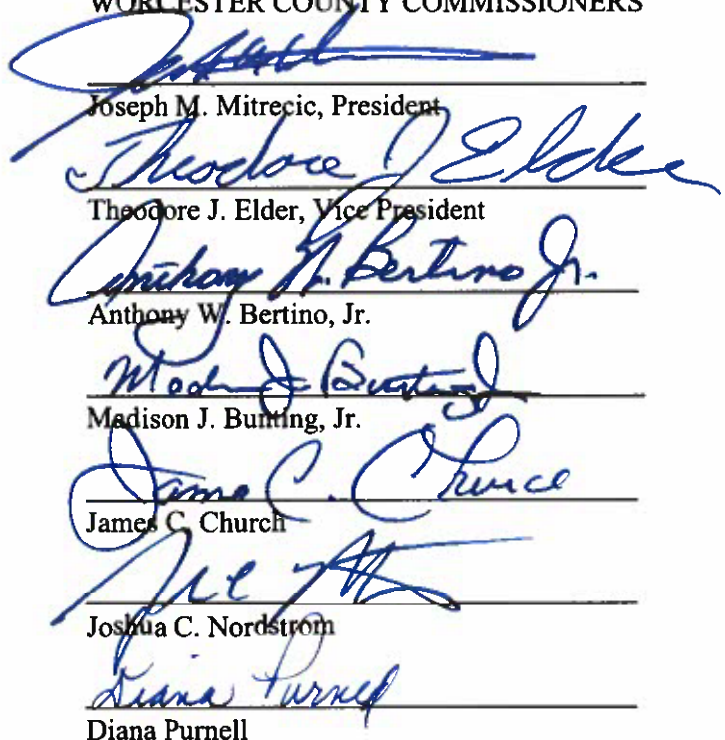 WORCESTER COUNTY COMMISSIONERS
Joseph M. Mitrecic, President
Theodore J Elder
Theodore J. Elder, Vice President
Anthony W. Bertino Jr.
Anthony W. Bertino, Jr.
Madison J Bunting Jr
Madison J. Bunting, Jr.
James C. Church
James C. Church
Joshua C. Nordstrom
Diana Purnell
Diana Purnell